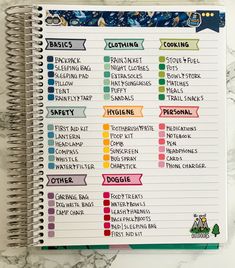 BASICS
BACKPACK
SLEEPING BAG
SLEEPING PAD
PILLOW
TENT
RAINFLY & TARP
CLOTHING
RAIN JACKET
NIGHT CLOTHES
EXTRA SOCKS
HAT & SUNGLASSES
PUFFY
SANDALS
COOKING
STOVE & FUEL
POTS
BOWL & SPORK
MATCHES
MEALS
TRAIL SNACKS
SAFETY
FIRST AID KIT
LANTERN
HEADLAMP
COMPASS
WHISTLE
WATER FILTER
HYGIENE
TOOTHBRUSH & PASTE
POOP KIT
COMB
SUNSCREEN
BUG SPRAY
CHAPSTICK
PERSONAL
MEDICATIONS
NOTEBOOK
PEN
HEADPHONES
CARDS
PHONE CHARGER
OTHER
GARBAGE BAG
DOG WASTE BAGS
CAMP CHAIR
DOGGIE
FOOD & TREATS
WATER & BOWLS
LEASH & HARNESS
BACKPACK & BOOTS
BED & SLEEPING BAG
FIRST AID KIT
OUTDOORS